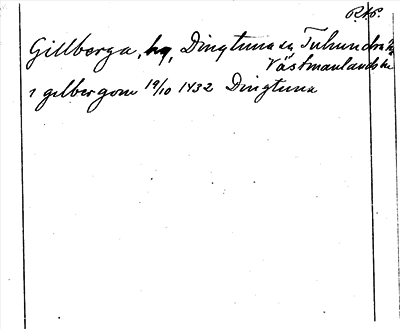 RAP.
Gillberga, by, Dingtuna sn Tuhundra hd
Västmanlands län
i gilbergom 19/10 1432 Dingtuna